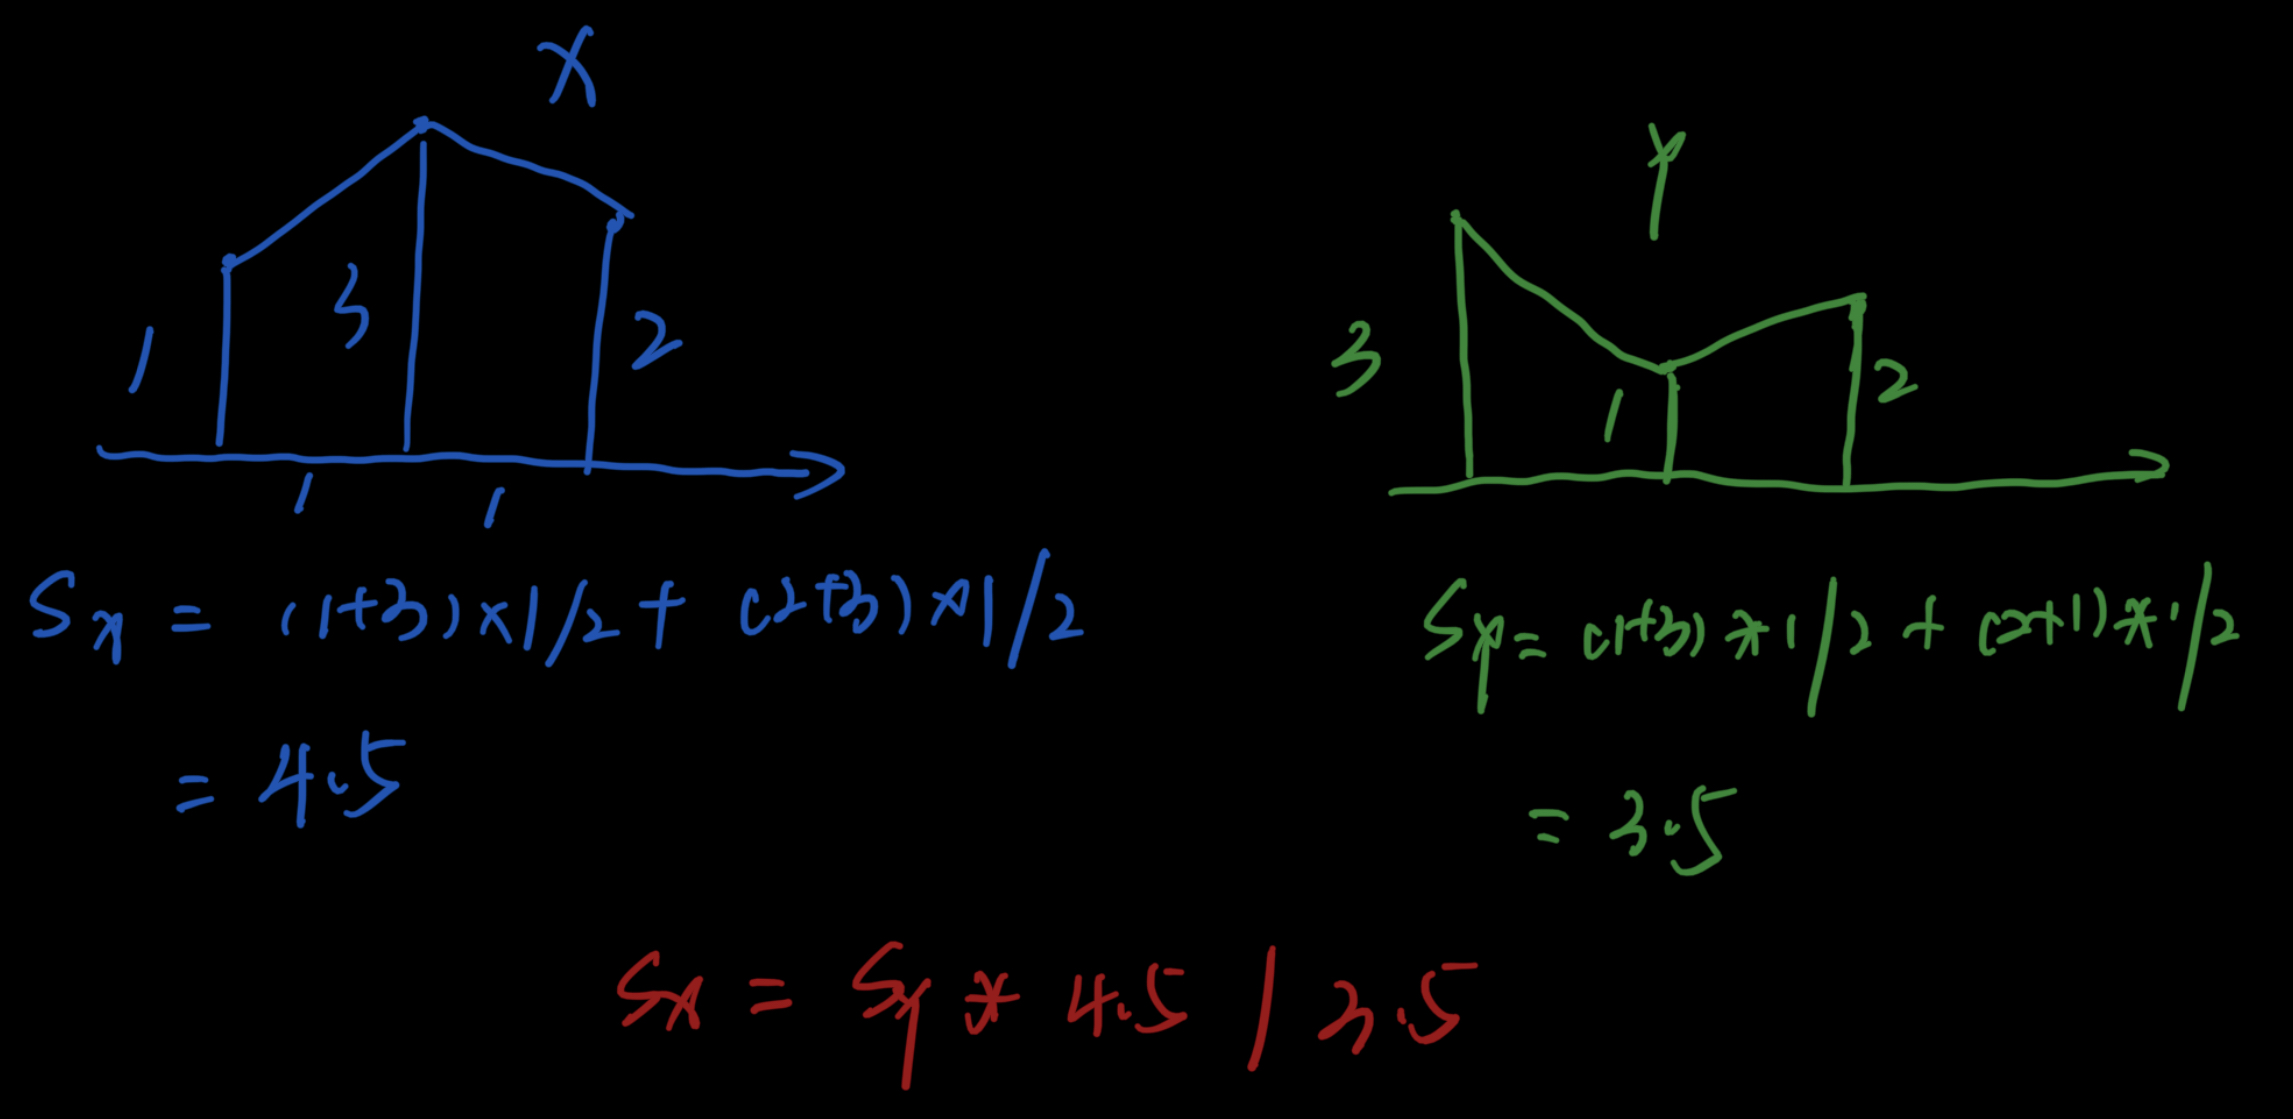 X
1
3
2
1
1
Sx = (1+3)x1/2 + (2+3)x1/2
= 4.5
Y
3
1
2
Sy = (1+3)*1/2 + (2+1)*1/2
= 3.5
Sx = Sy * 4.5 / 3.5